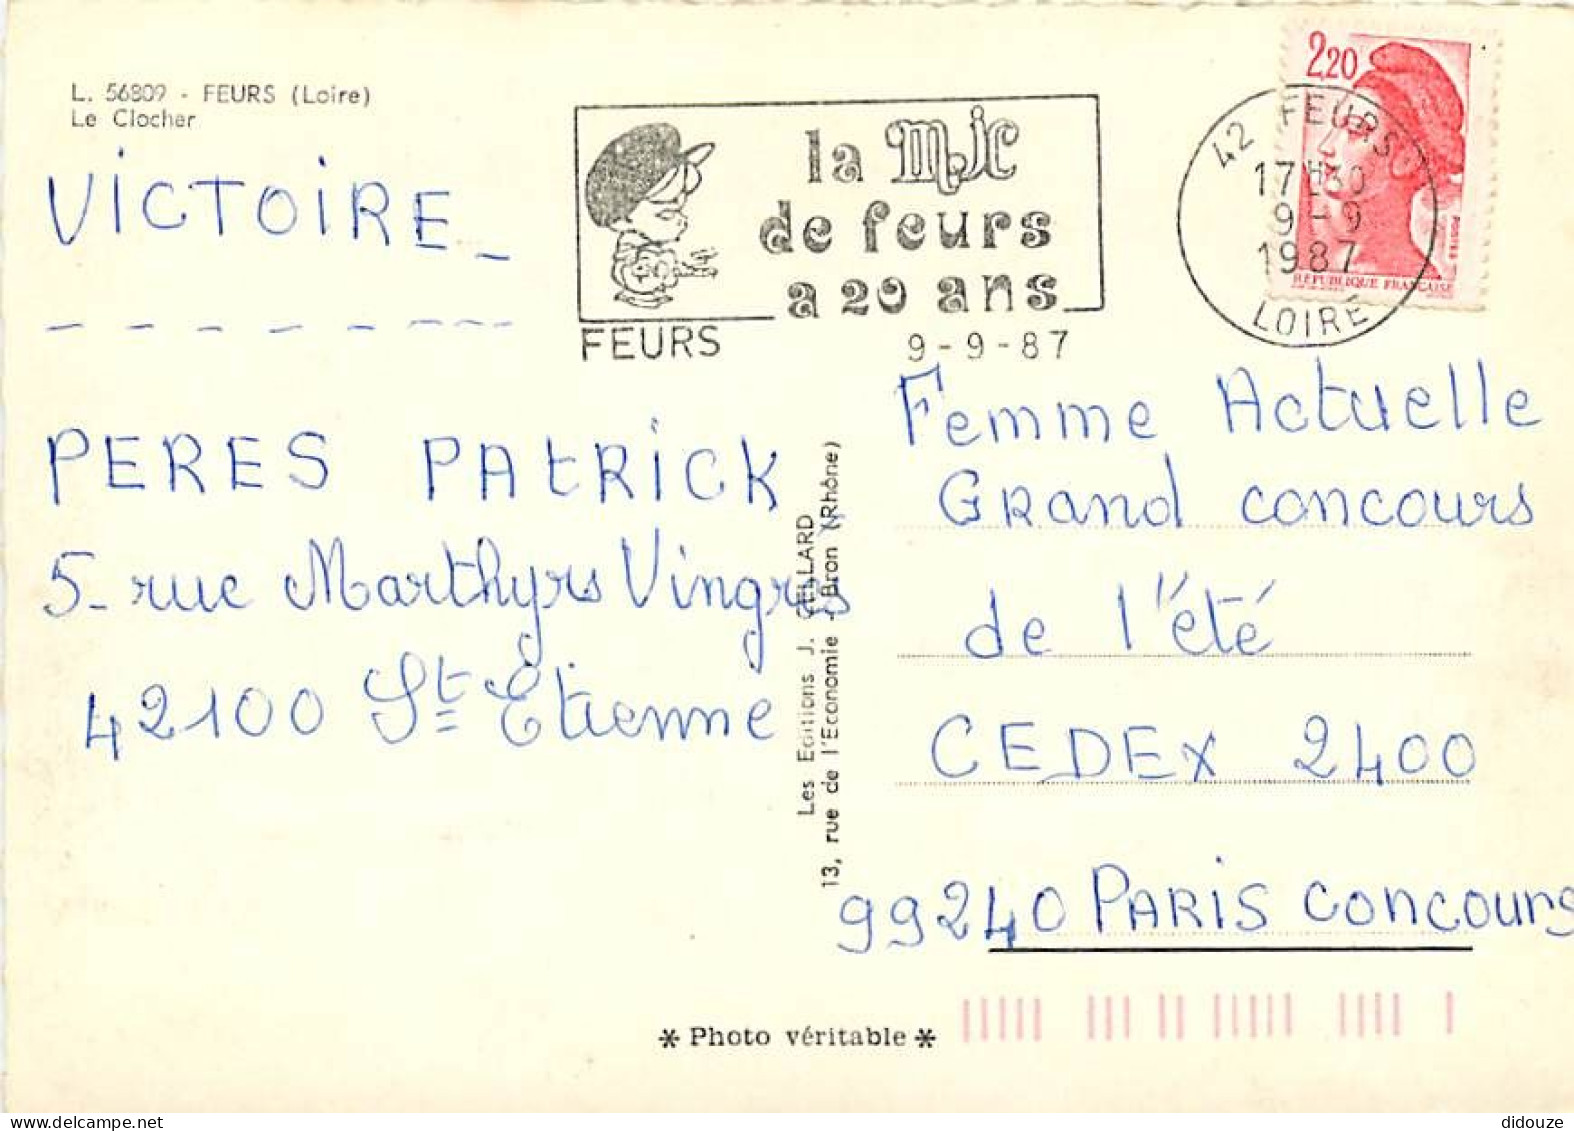 L. 56809 - FEURS (Loire)
Le Clocher
VICTOIRE_
la MJC
de feurs
a 20 ans
FEURS 9-9-87
2,20
RÉPUBLIQUE FRANÇAISE
POSTES
42 FEURS
17H30
9-9
1987
LOIRE
PERES PAtRiCK
5-rue Marthyrs Vingrés
42100 St Etienne
Les Editions J. CELLARD
13, rue de l'Economie - Bron (Rhône)
Femme Actuelle
Grand concours
de l'été
CEDEX 2400
99240 PARIS Concours
* Photo véritable *
didouze
delcampe.net